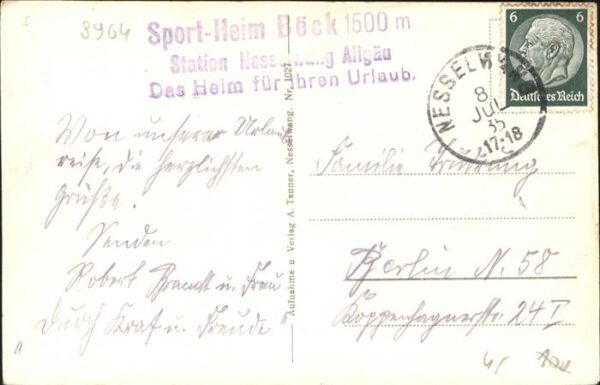 8964
Sport-Heim Böck 1500 m
Station Nesselwang Allgäu
Das Heim für Ihren Urlaub.
6 6
Deutsches Reich
NESSELWANG
8.
JUL
35
17-18
Von unserer Urlaubs
reise, die herzlichsten
Grüße.
Senden
Robert Brandt u. Frau
„Durch Kraf u. Freude"
Aufnahme u Verlag A. Tanner, Nesselwang. Nr. 1027
Familie
Berlin N. 58
Koppenhagnerstr. 24 I